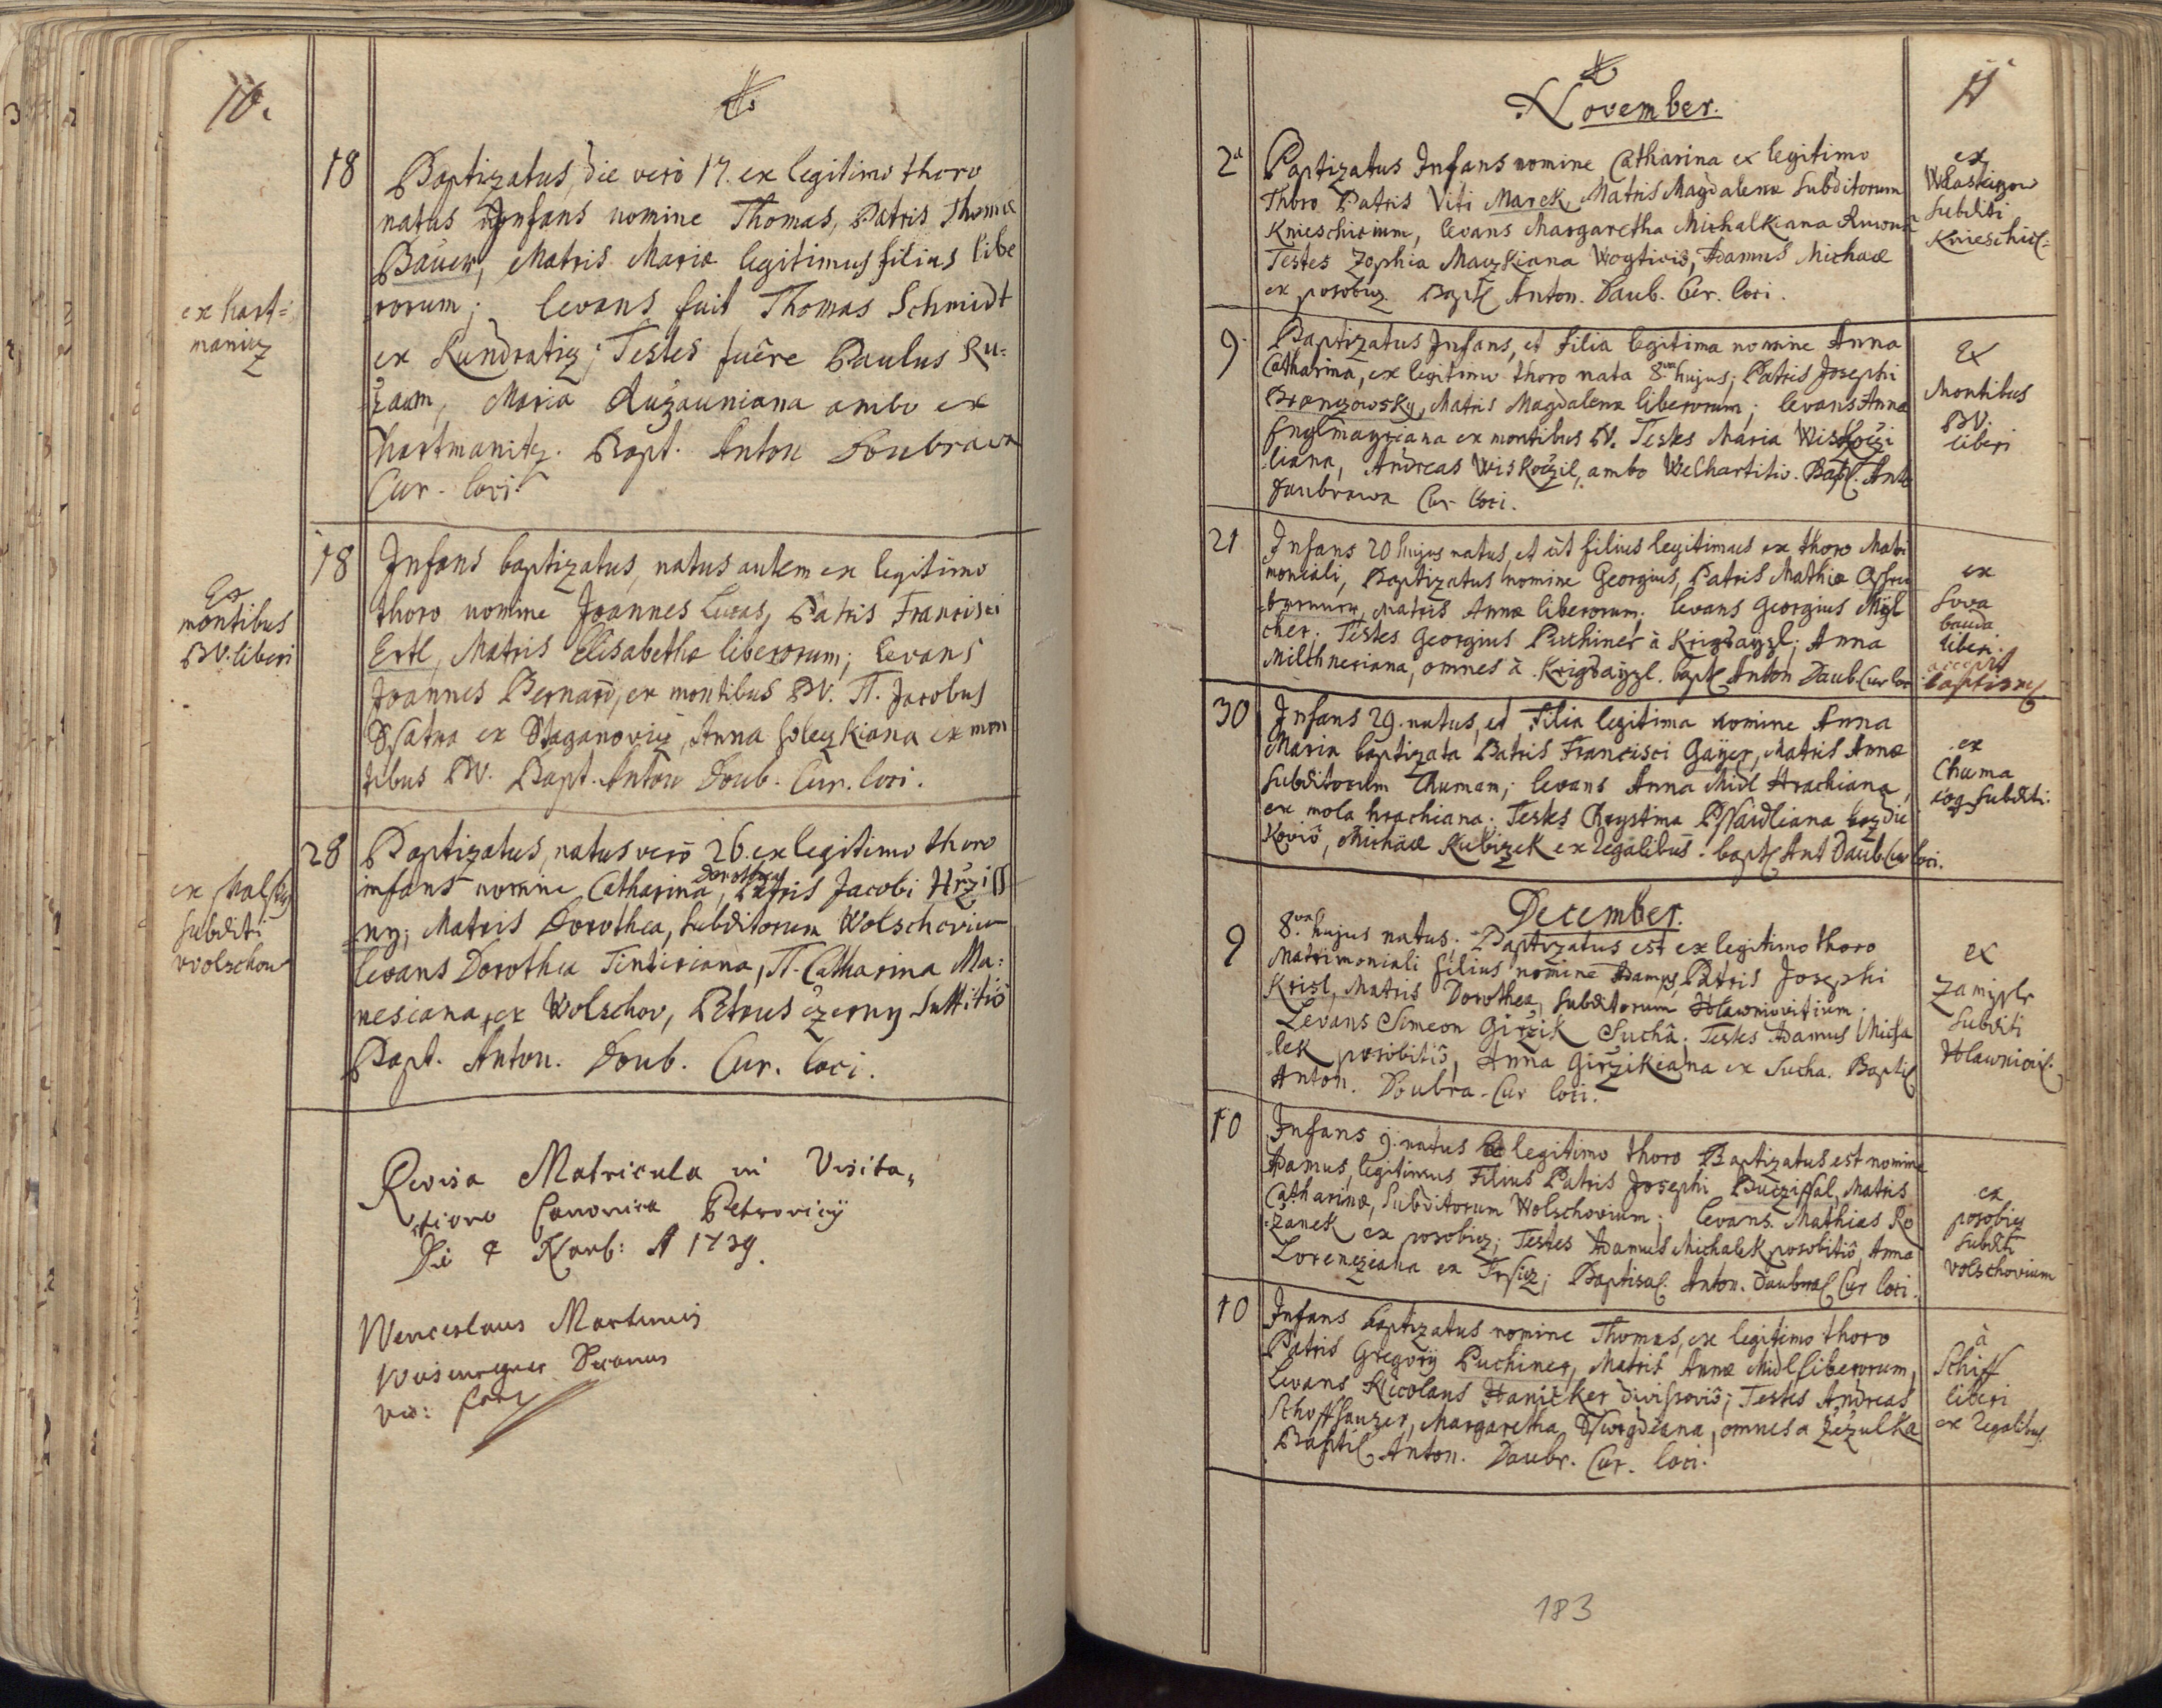 10.
18
Baptizatus, die verò 17. ex legitimo thoro
natus Infans nomine Thomas, Patris Thomæ
Bauer, Matris Mariæ legitimus filius libe
rorum; levans fuit Thomas Schmidt
ex Kundratiz; Testes fuêre Paulus Ru=
žaun, Maria Ružauniana ambo ex
hartmanitz. Bapt. Anton Doubrawa
Cur. loci.
ex hart=
maniz
18
Infans baptizatus, natus autem ex legitimo
thoro nomine Joannes Lucas, Patris Francisci
Ertl, Matris Elisabethæ liberorum; levans
Joannes Bernard, ex montibus BV. T. Jacobus
ex Staganoviz, Anna ex mon
tibus BV. Bapt. Anton Doub. Cur. loci.
Ex
montibus
BV. liberi
28
Baptizatus, natus verò 26. ex legitimo thoro
infans nomine Catharina Dorothea, Patris Jacobi Hržiss
ny; Matris Dorothea, subditorum Wolschoviu
levans Dorothea Tintiriana, T. Catharina Ma=
nesiana, ex Wolschov, Petrus Czerny Suttitiô
Bapt. Anton. Doub. Cur. loci.
ex
subditi
Wolschow
Revisa Matricula in Visita,,
tione Canonica Petrovicij
Die 9 Novb: A 1739.
Wenceslaus Martinus
Decanus
11
November.
2a
Baptizatus Infans nomine Catharina ex legitimo
Thoro Patris Viti Marek, Matris Magdalenæ subditorum
Knieschicium, levans Margaretha Michalkiana
Testes Zophia Maczkiana Wogticiô, Adamus Michae
ex posobiz. Bapt. Anton. Daub. Cur. loci.
ex
subditi
Knieschic=
9.
Baptizatus Infans, et filia legitima nomine Anna
Catharina, ex legitimo thoro nata 8va hujus; Patris Josephi
Branczowsky, Matris Magdalenæ liberorum; levans Anna
Englmayriana ex montibus BV. Testes Maria Wiskoczi
liana, Andreas Wiskoczil, ambo Welhartitiô. Bapt. Anto
Daubrawa Cur loci.
Ex
Montibus
BV.
liberi
21
Infans 20 hujus natus, et ut filius legitimus ex thoro Matri
moniali, Baptizatus nomine Georgius, Patris Mathiæ
Matris Annæ liberorum; levans Georgius Myl
cher; Testes Georgius Puchiner à Krigsaysl; Anna
Milthneriana, omnes à Krigsaysl. bapt. Anton Daub. Cur loci
ex
bauda
liberi
accepit
baptism
30
Infans 29. natus, et Filia legitima nomine Anna
Maria baptizata Patris Francisci Gayer, Matris Annæ
subditorum Chumam; levans Anna Midl Hrachiana,
ex mola hrachiana; Testes Chrystina
koviô, Michael Kubizek ex regalibus. bapt. Ant Daub Cur loci.
ex
Chuma
subditi.
December.
9
8va hujus natus; Baptizatus est ex legitimo thoro
Matrimoniali filius nomine Adamus, Patris Josephi
Krisl, Matris Dorothea, subditorum Hlawniovitium
Levans Simeon Giržik Suchâ; Testes Adamus Micha
lek posobitiô, Anna Giržikiana ex Sucha. Bapt
Anton. Doubra. Cur loci.
ex
Zamyslr
subditi
Hlawniovi
10
Infans 9. natus legitimo thoro Baptizatus est nomine
Adamus, legitimus Filius Patris Josephi Matris
Catharinæ, subditorum Wolschovium; levans. Mathias Ro
žanek ex posobiz; Testes Adamus Michalek posobitiô, Anna
Lorencziana ex Baptisa. Anton. Daubra Cur loci.
ex
posobiz
subditi
Volschovium
10
Infans baptizatus nomine Thomas, ex legitimo thoro
Patris Gregorij Puchiner, Matris Annæ Midl liberorum,
levans Nicolaus Hanicker divissoviô; Testes Andreas
Schoffhauzer, Margaretha omnes à Žežulka
Bapti Anton. Daubr. Cur. loci.
à
Schiff
liberi
ex regalibus
183